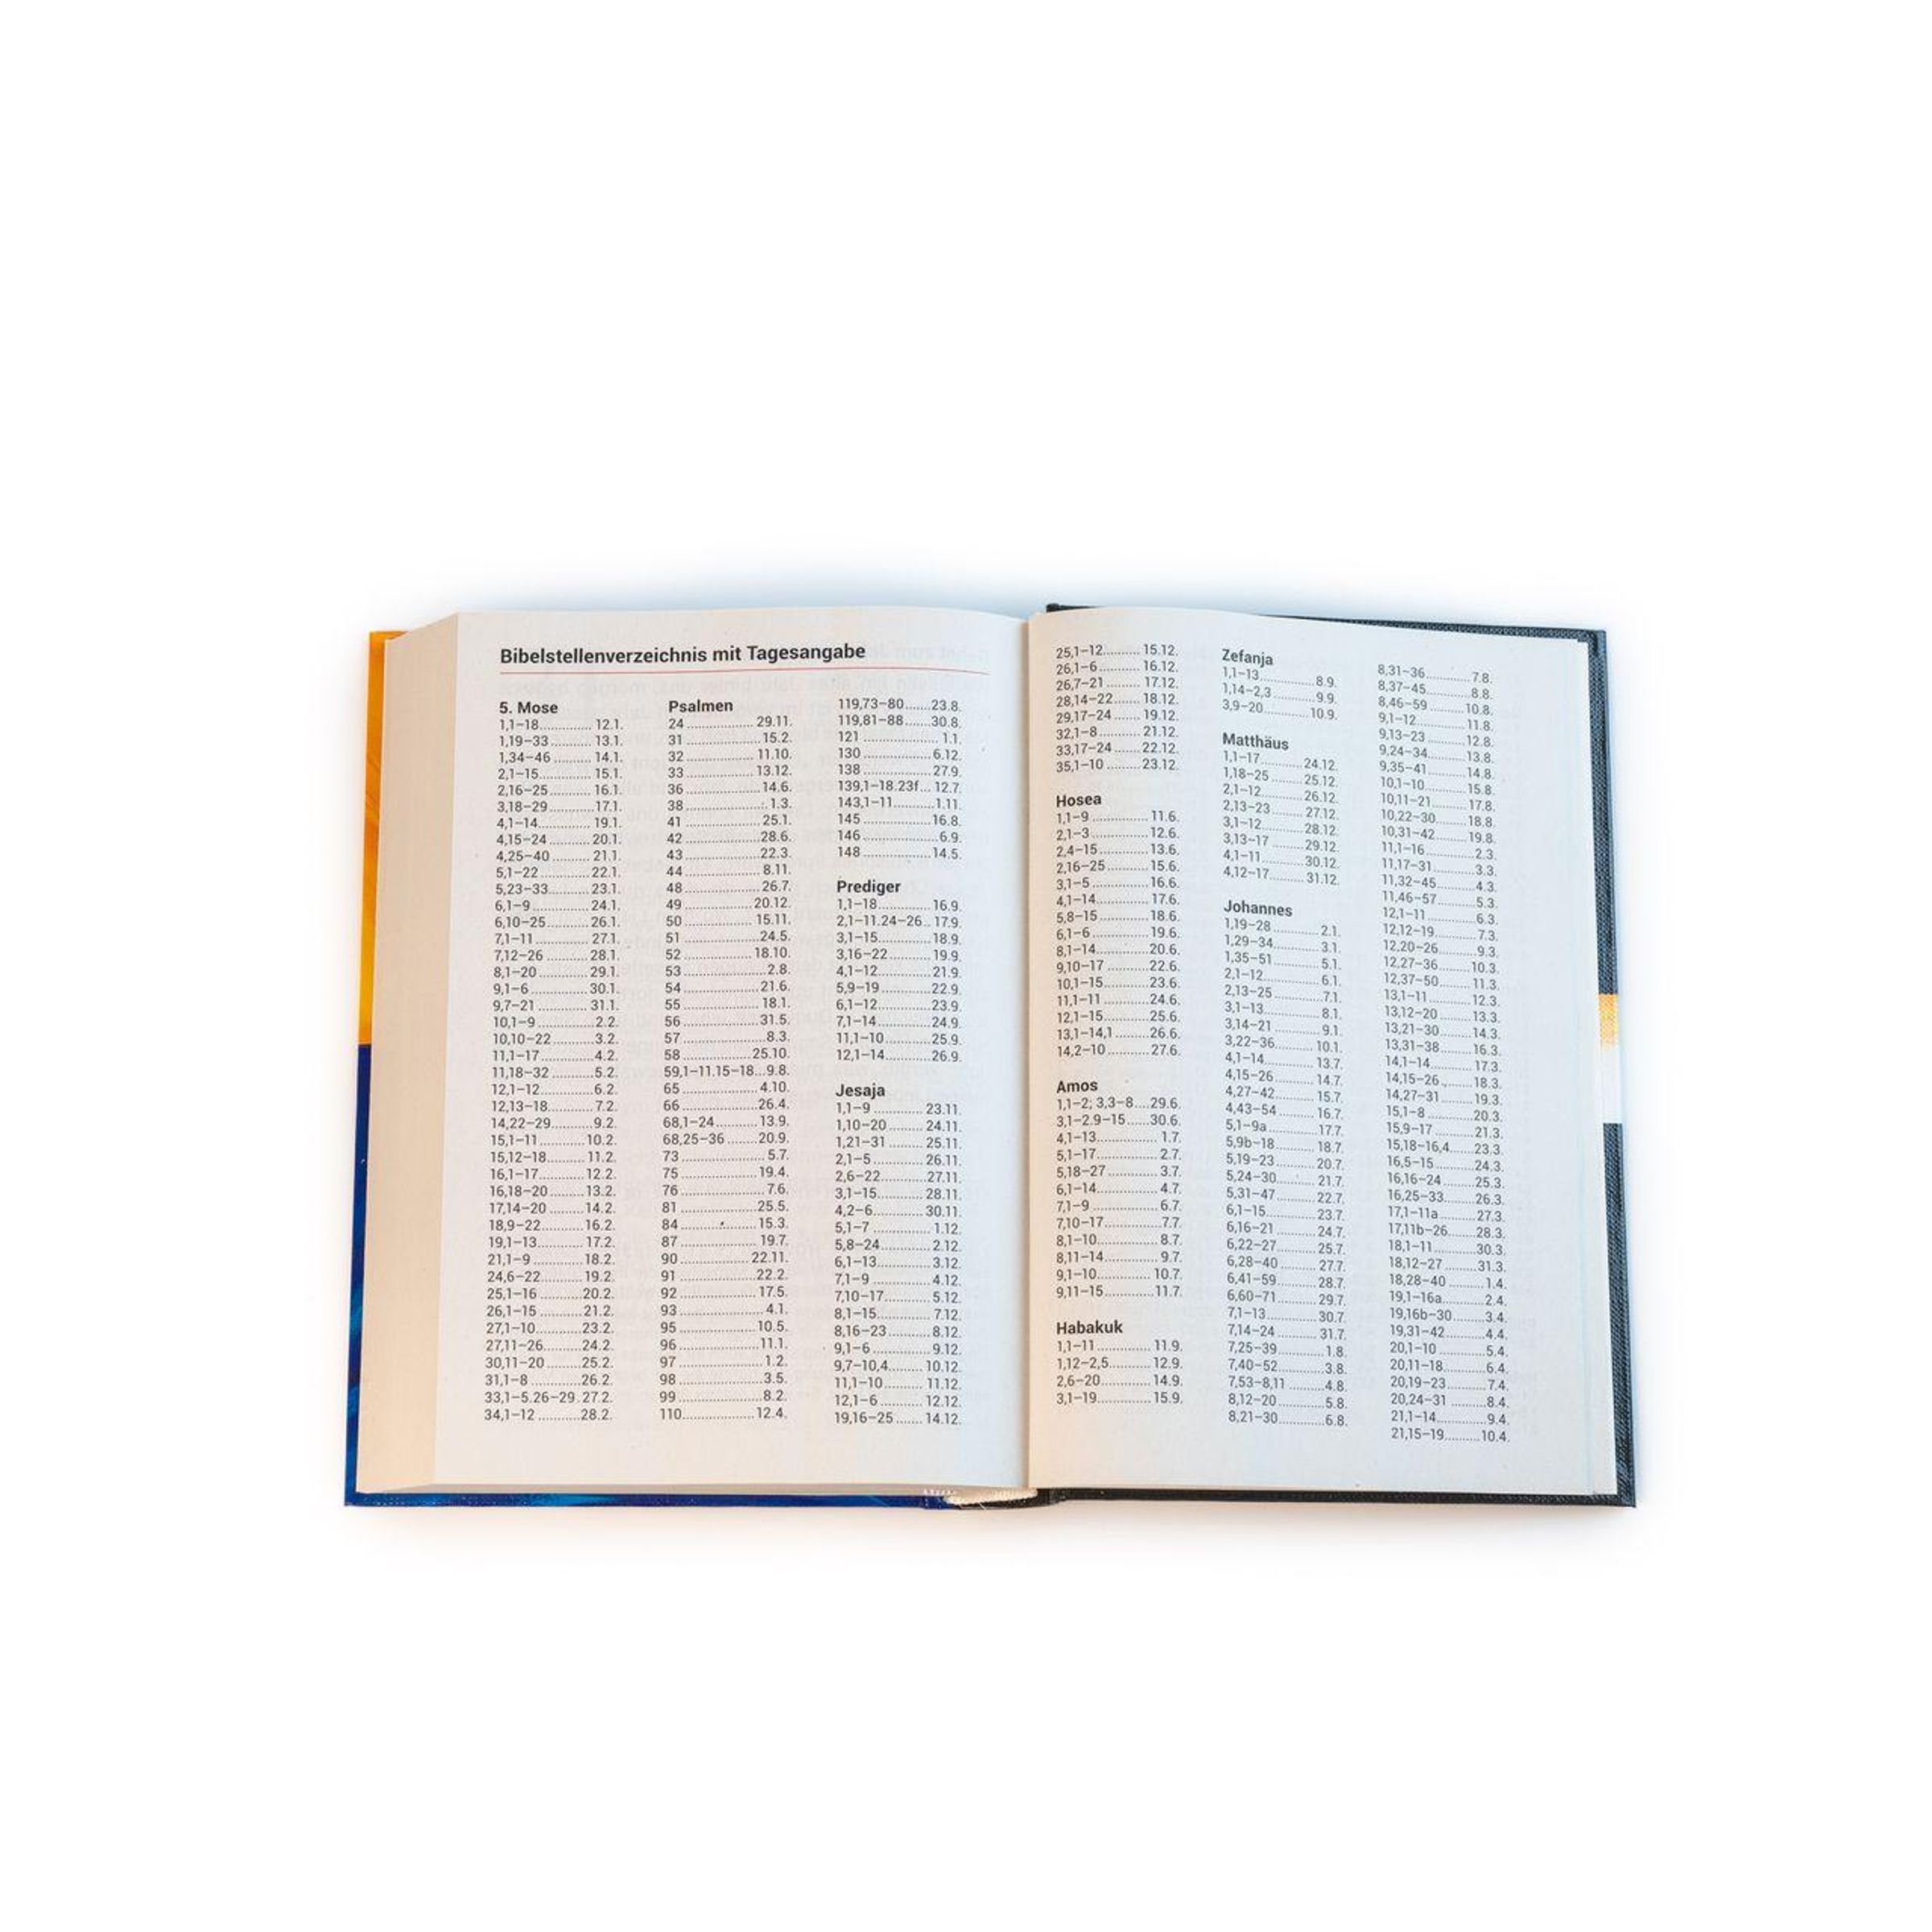 Bibelstellenverzeichnis mit Tagesangabe
5. Mose
1,1–18............. 12.1.
1,19–33.......... 13.1.
1,34–46.......... 14.1.
2,1–15............. 15.1.
2,16–25.......... 16.1.
3,18–29.......... 17.1.
4,1–14............. 19.1.
4,15–24.......... 20.1.
4,25–40.......... 21.1.
5,1–22............. 22.1.
5,23–33.......... 23.1.
6,1–9............. 24.1.
6,10–25.......... 26.1.
7,1–11............. 27.1.
7,12–26.......... 28.1.
8,1–20............. 29.1.
9,1–6............. 30.1.
9,7–21............. 31.1.
10,1–9............. 2.2.
10,10–22.......... 3.2.
11,1–17............. 4.2.
11,18–32.......... 5.2.
12,1–12............. 6.2.
12,13–18.......... 7.2.
14,22–29.......... 9.2.
15,1–11............. 10.2.
15,12–18.......... 11.2.
16,1–17............. 12.2.
16,18–20.......... 13.2.
17,14–20.......... 14.2.
18,9–22.......... 16.2.
19,1–13............. 17.2.
21,1–9............. 18.2.
24,6–22.......... 19.2.
25,1–16.......... 20.2.
26,1–15.......... 21.2.
27,1–10.......... 23.2.
27,11–26.......... 24.2.
30,11–20.......... 25.2.
31,1–8............. 26.2.
33,1–5.26–29. 27.2.
34,1–12.......... 28.2.
Psalmen
24............. 29.11.
31............. 15.2.
32............. 11.10.
33............. 13.12.
36............. 14.6.
38............. 1.3.
41............. 25.1.
42............. 28.6.
43............. 22.3.
44............. 8.11.
48............. 26.7.
49............. 20.12.
50............. 15.11.
51............. 24.5.
52............. 18.10.
53............. 2.8.
54............. 21.6.
55............. 18.1.
56............. 31.5.
57............. 8.3.
58............. 25.10.
59,1–11.15–18...9.8.
65............. 4.10.
66............. 26.4.
68,1–24.......... 13.9.
68,25–36....... 20.9.
73............. 5.7.
75............. 19.4.
76............. 7.6.
81............. 25.5.
84............. 15.3.
87............. 19.7.
90............. 22.11.
91............. 22.2.
92............. 17.5.
93............. 4.1.
95............. 10.5.
96............. 11.1.
97............. 1.2.
98............. 3.5.
99............. 8.2.
110............. 12.4.
119,73–80...... 23.8.
119,81–88...... 30.8.
121............. 1.1.
130............. 6.12.
138............. 27.9.
139,1–18.23f... 12.7.
143,1–11.......... 1.11.
145............. 16.8.
146............. 6.9.
148............. 14.5.
Prediger
1,1–18............. 16.9.
2,1–11.24–26.. 17.9.
3,1–15............. 18.9.
3,16–22.......... 19.9.
4,1–12............. 21.9.
5,9–19............. 22.9.
6,1–12............. 23.9.
7,1–14............. 24.9.
11,1–10.......... 25.9.
12,1–14.......... 26.9.
Jesaja
1,1–9............. 23.11.
1,10–20.......... 24.11.
1,21–31.......... 25.11.
2,1–5............. 26.11.
2,6–22.......... 27.11.
3,1–15.......... 28.11.
4,2–6............. 30.11.
5,1–7............. 1.12.
5,8–24.......... 2.12.
6,1–13............. 3.12.
7,1–9............. 4.12.
7,10–17.......... 5.12.
8,1–15............. 7.12.
8,16–23.......... 8.12.
9,1–6............. 9.12.
9,7–10,4....... 10.12.
11,1–10.......... 11.12.
12,1–6.......... 12.12.
19,16–25...... 14.12.
25,1–12......... 15.12.
26,1–6.......... 16.12.
26,7–21......... 17.12.
28,14–22...... 18.12.
29,17–24...... 19.12.
32,1–8.......... 21.12.
33,17–24...... 22.12.
35,1–10........ 23.12.
Hosea
1,1–9............. 11.6.
2,1–3............. 12.6.
2,4–15............. 13.6.
2,16–25.......... 15.6.
3,1–5............. 16.6.
4,1–14............. 17.6.
5,8–15............. 18.6.
6,1–6............. 19.6.
8,1–14............. 20.6.
9,10–17.......... 22.6.
10,1–15.......... 23.6.
11,1–11............. 24.6.
12,1–15.......... 25.6.
13,1–14,1........ 26.6.
14,2–10.......... 27.6.
Amos
1,1–2; 3,3–8....29.6.
3,1–2.9–15......30.6.
4,1–13............. 1.7.
5,1–17............. 2.7.
5,18–27.......... 3.7.
6,1–14............. 4.7.
7,1–9............. 6.7.
7,10–17.......... 7.7.
8,1–10............. 8.7.
8,11–14.......... 9.7.
9,1–10............. 10.7.
9,11–15.......... 11.7.
Habakuk
1,1–11............. 11.9.
1,12–2,5.......... 12.9.
2,6–20............. 14.9.
3,1–19............. 15.9.
Zefanja
1,1–13............. 8.9.
1,14–2,3.......... 9.9.
3,9–20.......... 10.9.
Matthäus
1,1–17.......... 24.12.
1,18–25........ 25.12.
2,1–12.......... 26.12.
2,13–23........ 27.12.
3,1–12.......... 28.12.
3,13–17........ 29.12.
4,1–11.......... 30.12.
4,12–17........ 31.12.
Johannes
1,19–28.......... 2.1.
1,29–34.......... 3.1.
1,35–51.......... 5.1.
2,1–12............. 6.1.
2,13–25.......... 7.1.
3,1–13............. 8.1.
3,14–21.......... 9.1.
3,22–36.......... 10.1.
4,1–14............. 13.7.
4,15–26.......... 14.7.
4,27–42.......... 15.7.
4,43–54.......... 16.7.
5,1–9a............. 17.7.
5,9b–18.......... 18.7.
5,19–23.......... 20.7.
5,24–30.......... 21.7.
5,31–47.......... 22.7.
6,1–15............. 23.7.
6,16–21.......... 24.7.
6,22–27.......... 25.7.
6,28–40.......... 27.7.
6,41–59.......... 28.7.
6,60–71.......... 29.7.
7,1–13............. 30.7.
7,14–24.......... 31.7.
7,25–39.......... 1.8.
7,40–52.......... 3.8.
7,53–8,11.......... 4.8.
8,12–20.......... 5.8.
8,21–30.......... 6.8.
8,31–36.......... 7.8.
8,37–45.......... 8.8.
8,46–59.......... 10.8.
9,1–12............. 11.8.
9,13–23.......... 12.8.
9,24–34.......... 13.8.
9,35–41.......... 14.8.
10,1–10.......... 15.8.
10,11–21.......... 17.8.
10,22–30........ 18.8.
10,31–42........ 19.8.
11,1–16............. 2.3.
11,17–31.......... 3.3.
11,32–45.......... 4.3.
11,46–57.......... 5.3.
12,1–11............. 6.3.
12,12–19.......... 7.3.
12,20–26.......... 9.3.
12,27–36........ 10.3.
12,37–50........ 11.3.
13,1–11.......... 12.3.
13,12–20........ 13.3.
13,21–30........ 14.3.
13,31–38........ 16.3.
14,1–14.......... 17.3.
14,15–26........ 18.3.
14,27–31........ 19.3.
15,1–8.......... 20.3.
15,9–17.......... 21.3.
15,18–16,4......23.3.
16,5–15.......... 24.3.
16,16–24........ 25.3.
16,25–33........ 26.3.
17,1–11a.......... 27.3.
17,11b–26........ 28.3.
18,1–11.......... 30.3.
18,12–27........ 31.3.
18,28–40.......... 1.4.
19,1–16a.......... 2.4.
19,16b–30........ 3.4.
19,31–42.......... 4.4.
20,1–10.......... 5.4.
20,11–18.......... 6.4.
20,19–23.......... 7.4.
20,24–31.......... 8.4.
21,1–14............. 9.4.
21,15–19.......... 10.4.